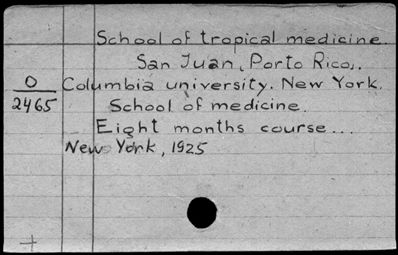 School of tropical medicine.
San Juan, Porto Rico.
O
2465
Columbia university. New York.
School of medicine.
Eight months course...
New York, 1925